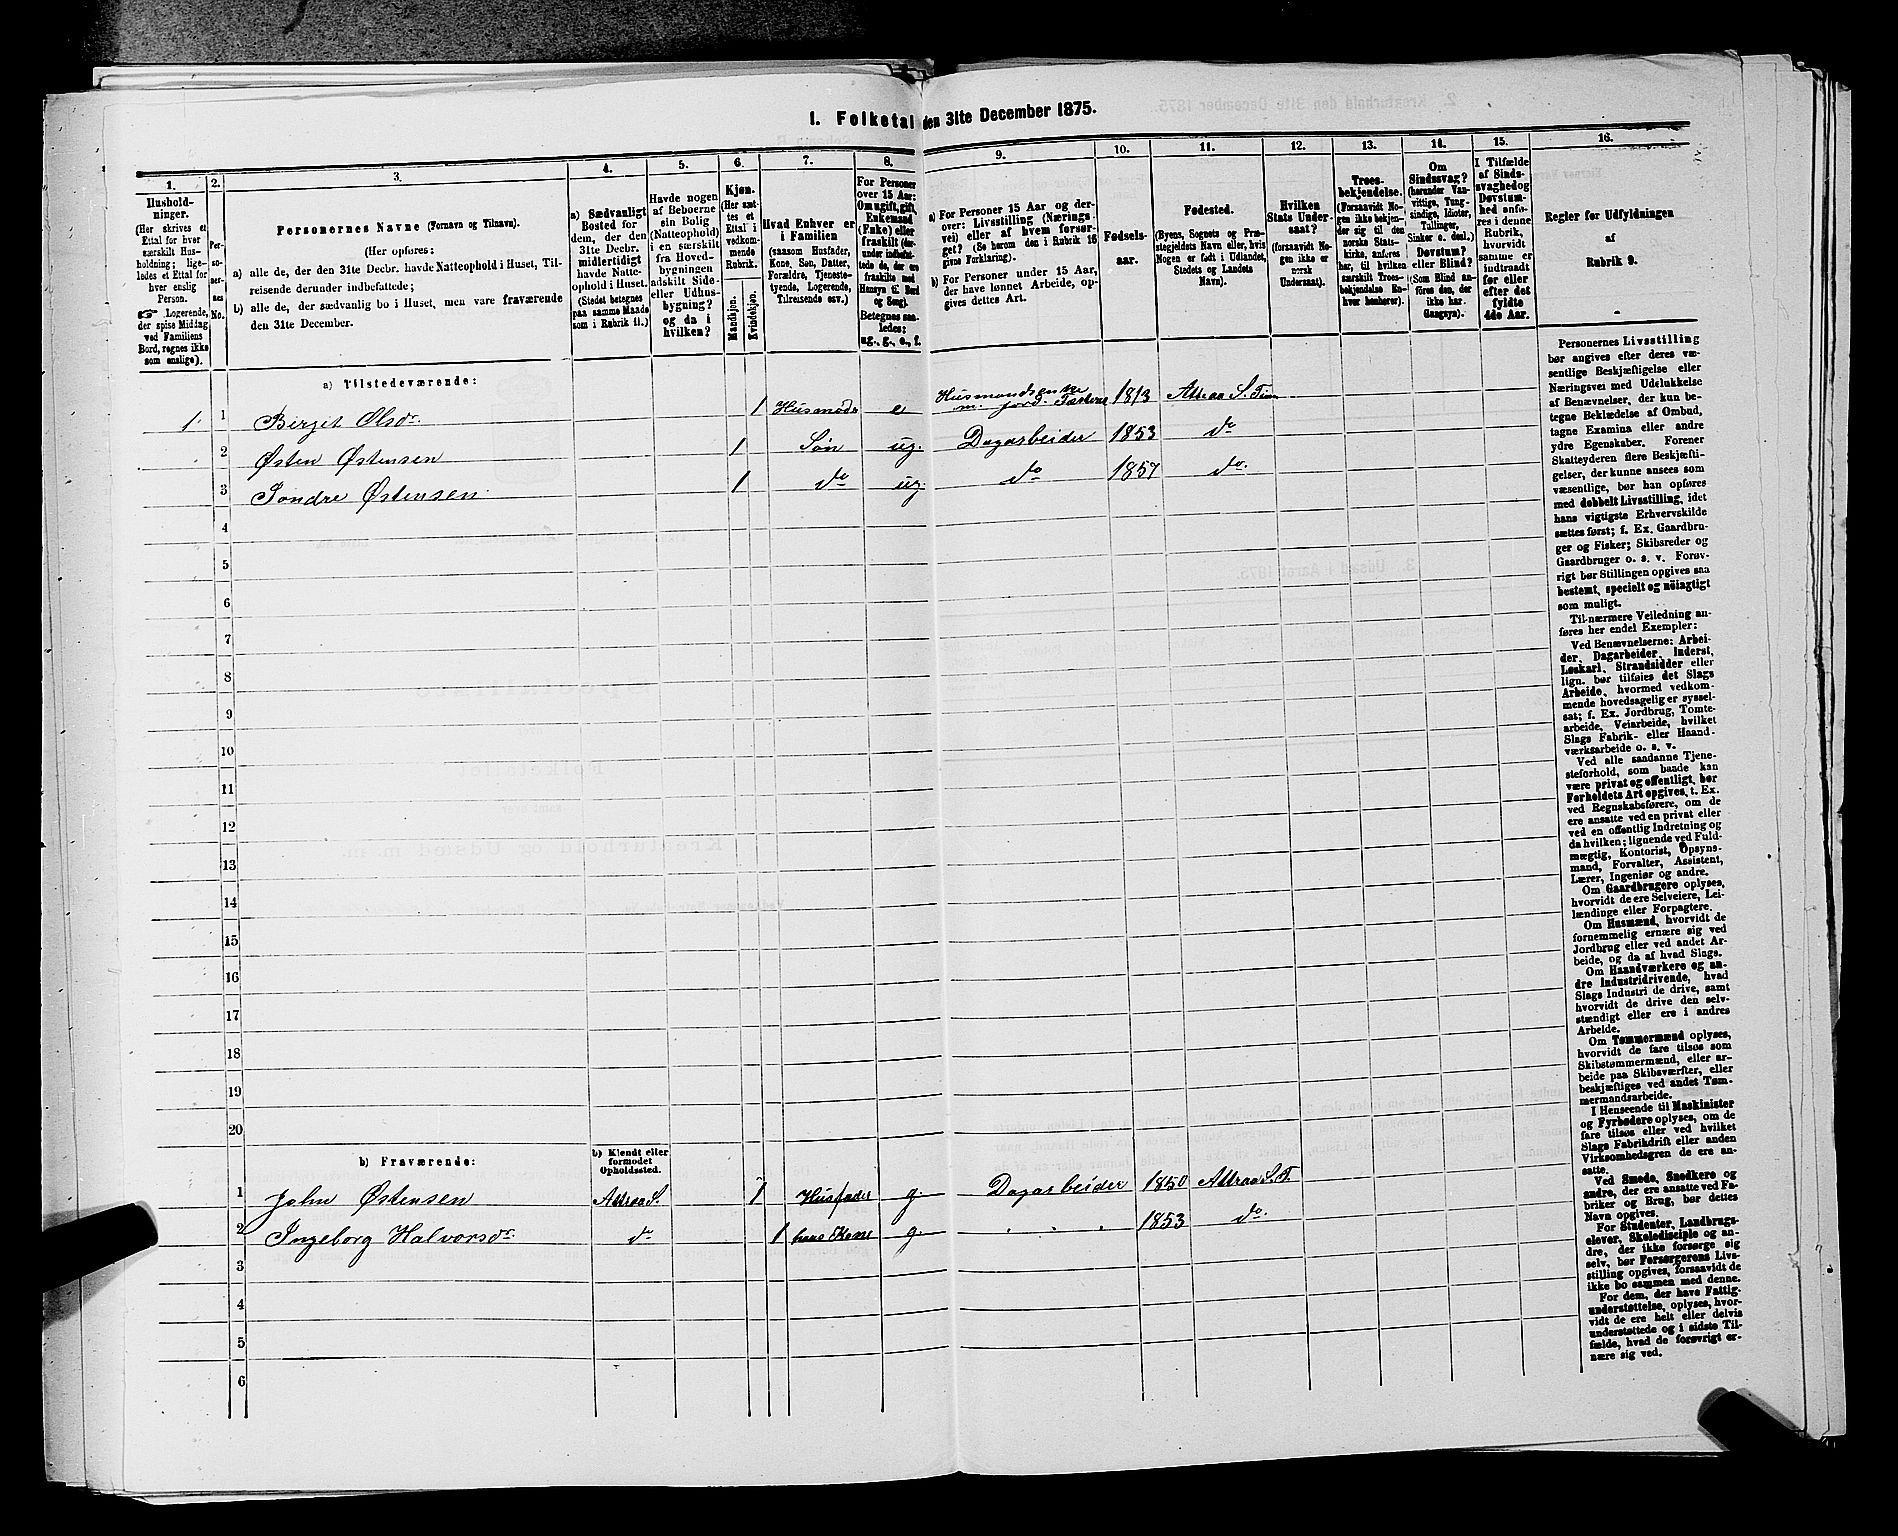 1. Folketal den 31te December 1875.
1.
Husholdninger.
(Her skrives et
Ettal for hver
særskilt Husholdning; ligeledes
et Ettal for
hver enslig
Person.
Logerende,
der spise Middag
ved Familiens
Bord, regnes ikke
som enslige).
2.
Personernes No.
3.
Personernes Navne (Fornavn og Tilnavn).
(Her opføres:
a) alle de, der den 31te Decbr. havde Natteophold i Huset, Tilreisende
derunder indbefattede;
b) alle de, der sædvanlig bo i Huset, men vare fraværende
den 31te December.
4.
a) Sædvanligt
Bosted for
dem, der den
31te Decbr.
midlertidigt
havde Natteophold
i Huset.
(Stedet betegnes
paa samme Maade
som i Rubrik 11.)
5.
Havde nogen
af Beboerne
sin Bolig
(Natteophold)
i en særskilt
fra Hovedbygningen
adskilt Side-
eller Udhusbygning?
og da i
hvilken?
6.
Kjøn.
(Her sættes
et
Ettal i
vedkommende
Rubrik.
Mandkjøn.
Kvindekjøn.
7.
Hvad Enhver er
i Familien
(saasom Husfader,
Kone, Søn, Datter,
Forældre, Tjenestetyende,
Logerende,
Tilreisende osv.)
8.
For Personer
over 15 Aar:
Om ugift, gift,
Enkemand
(Enke) eller
fraskilt (derunder
indbefattede
de, der ere
fraskilte med
Hensyn til Bord
og Seng).
Betegnes saaledes:
ug., g., e., f.
9.
a) For Personer 15 Aar og derover:
Livsstilling (Næringsvei)
eller af hvem forsørget?
(Se herom den i Rubrik 16
givne Forklaring).
b) For Personer under 15 Aar,
der have lønnet Arbeide, opgives
dettes Art.
10.
Fødselsaar.
11.
Fødested.
(Byens, Sognets og Præstegjeldets
Navn eller, hvis
Nogen er født i Udlandet,
Stedets og Landets
Navn).
12.
Hvilken
Stats Undersaat?
(forsaavidt Nogen
ikke er
norsk
Undersaat).
13.
Troesbekjendelse.
(Forsaavidt Nogen
ikke bekjender
sig til den
norske Statskirke,
anføres
her, til hvilken
særskilt Troesbekjendelse
Enhver
henhører).
14.
Om
Sindssvag?
(herunder Vanvittige,
Tungsindige,
Idioter,
Tullinger,
Sinker o. desl.)
Døvstum?
eller Blind?
(Som Blind anføres
den, der
ikke har
Gangsyn).
15.
I Tilfælde
af Sindssvaghed
og
Døvstumhed
anføres
i denne
Rubrik,
hvorvidt
samme er
indtraadt
før eller
efter det
fyldte
4de Aar.
16.
Regler for Udfyldningen
af
Rubrik 9.
a) Tilstedeværende:
1. 1 Birgit Olsdr. 1 Husmoder e Husmandsenke m. jord. 1813 Attraa S. Tinn
2 Østen Østensen 1 Søn ug. Dagarbeider 1853 do
3 Sondre Østensen 1 do ug. do 1857 do.
4
5
6
7
8
9
10
11
12
13
14
15
16
17
18
19
20
b) Fraværende:
b) Kjendt eller
formodet
Opholdssted.
1 John Østensen Attraa S. 1 Husfader g. Dagarbeider 1850 Attraa S. T.
2 Ingeborg Halvorsdr. do 1 hans Kone g. " " " 1853 do.
3
4
5
6
Personernes Livsstilling
bør angives efter deres væsentlige
Beskjæftigelse eller
Næringsvei med Udelukkelse
af Benævnelser, der kun betegne
Beklædelse af Ombud,
tagne Examina eller andre
ydre Egenskaber. Forener
Skatteyderen flere Beskjæftigelser,
der kunne ansees som
væsentlige, bør han opføres
med dobbelt Livsstilling, idet
hans vigtigste Erhvervskilde
sættes først; f. Ex. Gaardbruger
og Fisker; Skibsreder og
Gaardbruger o. s. v. Forøvrigt
bør Stillingen opgives saa
bestemt, specielt og nöiagtigt
som muligt.
Til nærmere Veiledning anføres
her endel Exempler:
Ved Benævnelserne: Arbeider,
Dagarbeider, Inderst,
Løskarl, Strandsidder eller
lign. bør tilføies det Slags
Arbeide, hvormed vedkommende
hovedsagelig er sysselsat;
f. Ex. Jordbrug, Tomtearbeide,
Veiarbeide, hvilket
Slags Fabrik- eller Haandværksarbeide
o. s. v.
Ved alle saadanne Tjenesteforhold,
som baade kan
være privat og offentligt, bør
Forholdets Art opgives, t. Ex.
ved Regnskabsførere, om de
ere ansatte ved en privat eller
ved en offentlig Indretning og
da hvilken; lignende ved Fuldmægtig,
Kontorist, Opsynsmand,
Forvalter, Assistent,
Lærer, Ingeniør og andre.
Om Gaardbrugere oplyses,
hvorvidt de ere Selveiere, Leilændinge
eller Forpagtere.
Om Husmænd, hvorvidt de
fornemmelig ernære sig ved
Jordbrug eller ved andet Arbeide,
og da af hvad Slags.
Om Haandværkere og andre
Industridrivende, hvad
Slags Industri de drive, samt
hvorvidt de drive den selvstændigt
eller ere i andres
Arbeide.
Om Tømmermænd oplyses,
hvorvidt de fare tilsøs som
Skibstømmermænd, eller arbeide
paa Skibsværfter, eller
beskjæftiges ved andet Tømmermandsarbeide.
I Henseende til Maskinister
og Fyrbødere oplyses, om de
fare tilsøs eller ved hvilket
Slags Fabrikdrift eller anden
Virksomhed de ere ansatte.
Ved Smede, Snedkere og
andre, der ere ansatte ved Fabriker
og Brug, bør dettes
Navn opgives.
For Studenter, Landbrugselever,
Skoledisciple og andre,
der ikke forsørge sig
selv, bør Forsørgerens Livsstilling
opgives, forsaavidt de
ikke bo sammen med denne.
For dem, der have Fattigunderstøttelse,
oplyses, hvorvidt
de ere helt eller delvis
understøttede og i sidste Tilfælde,
hvad de forøvrigt ernære
sig ved.